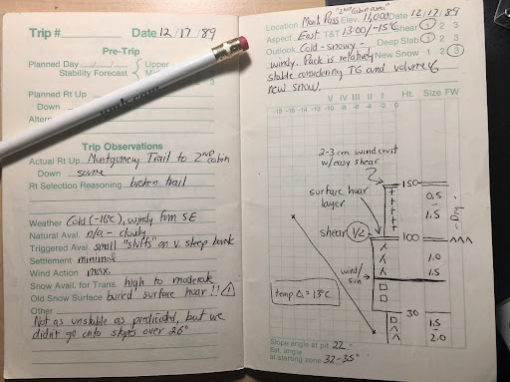 Trip # Date 12/17/89
Pre-Trip
Planned Day / / Upper
Stability Forecast
Planned Rt Up
Down
Altern
Trip Observations
Actual Rt Up Montgomery Trail to 2ND cabin
Down same
Rt Selection Reasoning broken trail
Weather Cold (-16°C), windy from SE
Natural Aval. n/a - cloudy
Triggered Aval. small "sluffs" on v. steep bank
Settlement minimal
Wind Action max.
Snow Avail. for Trans high to moderate
Old Snow Surface buried surface hoar!!
Other
Not as unstable as predicted, but we
didn't go onto slopes over 26°
"2nd Cabin area"
Location Mont Pass Elev. 11,000 Date 12/17/89
Aspect East T&T 1300/-15°C Shear 1 2 3
Outlook Cold - snowy - Deep Slab 1 2 3
windy. Pack is relatively New Snow 1 2 3
stable considering TG and volume of
new snow.
V IV III II I Ht. Size FW
-16 -14 -12 -10 -8 -6 -4 -2
2-3 cm wind crust
w/ easy shear
150
surface hoar
layer
0.5
-
1.5
Dry
shear 1/2
100
1.0
1.5
wind/
sun
temp Δ = 13°C
30
1.5
-
2.0
Slope angle at pit 22
Est. angle
at starting zone 32-35°